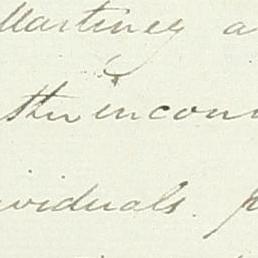 Martiney a
the incon
ividuals.